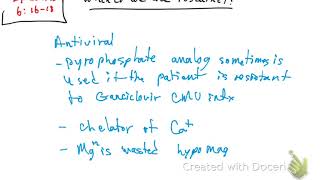 6:16-18
Antiviral
- pyrophosphate analog sometimes is
used if the patient is resistant
to Ganciclovir CMV infx
- chelator of Ca+
- Mg is wasted hypomag
Created with Doceri